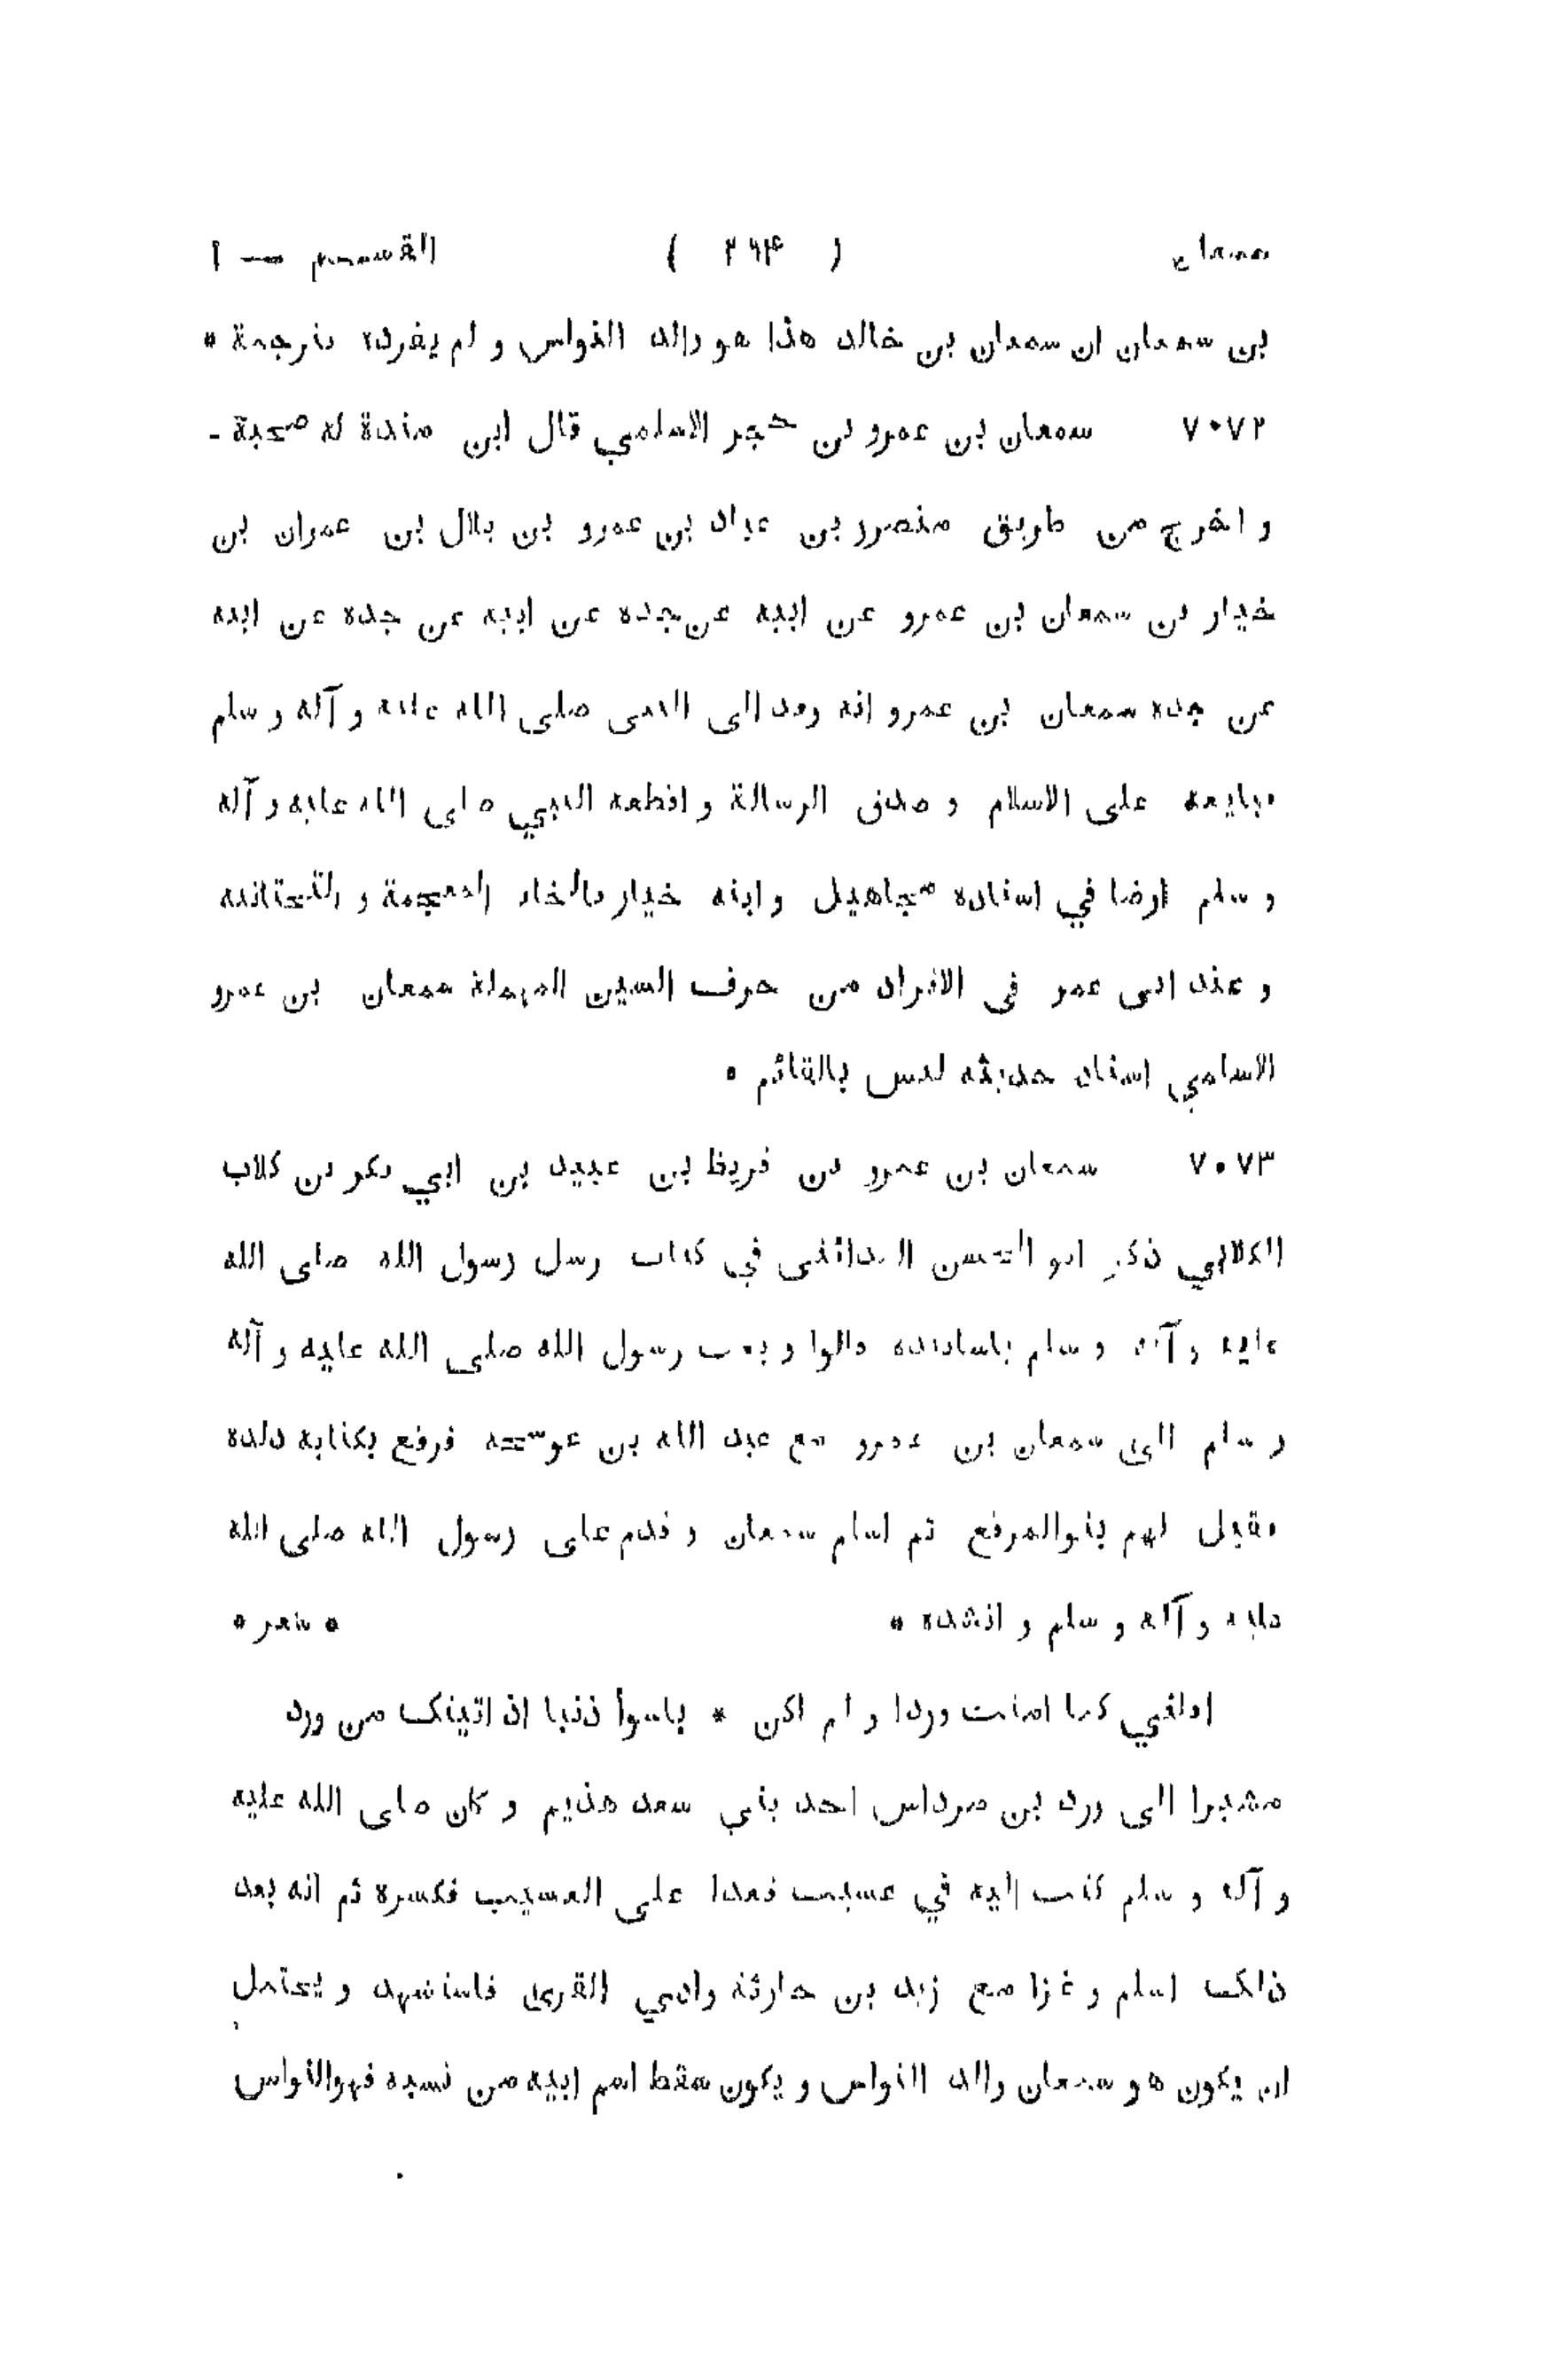 سمعان ( ٢٦۴ ) القسم — ١
بن سمعان ان سمعان بن خالد هذا هو والد النواس و لم يفرده بترجمة *
٧٠٧٢ سمعان بن عمرو بن حجر الاسلمي قال ابن مندة له صحبة -
و اخرج من طريق منصور بن عباد بن عمرو بن بلال بن عمران بن
خيار بن سمعان بن عمرو عن ابيه عن جده عن ابيه عن جده عن ابيه
عن جده سمعان بن عمرو انه وفد الى النبى صلى الله عليه و آله و سلم
فبايعه على الاسلام و صدق الرسالة و اقطعه النبي صلى الله عليه و آله
و سلم ارضا في اسناده مجاهيل و ابنه خيار بالخاء المعجمة و التحتانيه
و عند ابى عمر فى الافراد من حرف السين المهملة سمعان بن عمرو
الاسلمي اسناد حديثه ليس بالقائم *
٧٠٧٣ سمعان بن عمرو بن قريظ بن عبيد بن ابي بكر بن كلاب
الكلابي ذكر ابو الحسن المدائنى في كتاب رسل رسول الله صلى الله
عليه و آله و سلم باسانيده قالوا و بعث رسول الله صلى الله عليه و آله
و سلم الى سمعان بن عمرو مع عبد الله بن عوسجه فرقع بكتابه دلده
فقيل لهم بنو المرقع ثم اسلم سمعان و قدم على رسول الله صلى الله
عليه و آله و سلم و انشده * * شعر *
اقلني كما امنت وردا و لم اكن * باسوأ ذنبا اذ اتيتك من ورد
مشيرا الى ورد بن مرداس احد بني سعد هذيم و كان صلى الله عليه
و آله و سلم كتب اليه في عسيب فعدا على العسيب فكسره ثم انه بعد
ذلك اسلم و غزا مع زيد بن حارثة وادي القرى فاستشهد و يحتمل
ان يكون هو سمعان والد النواس و يكون سقط اسم ابيه من نسبه فهو النواس